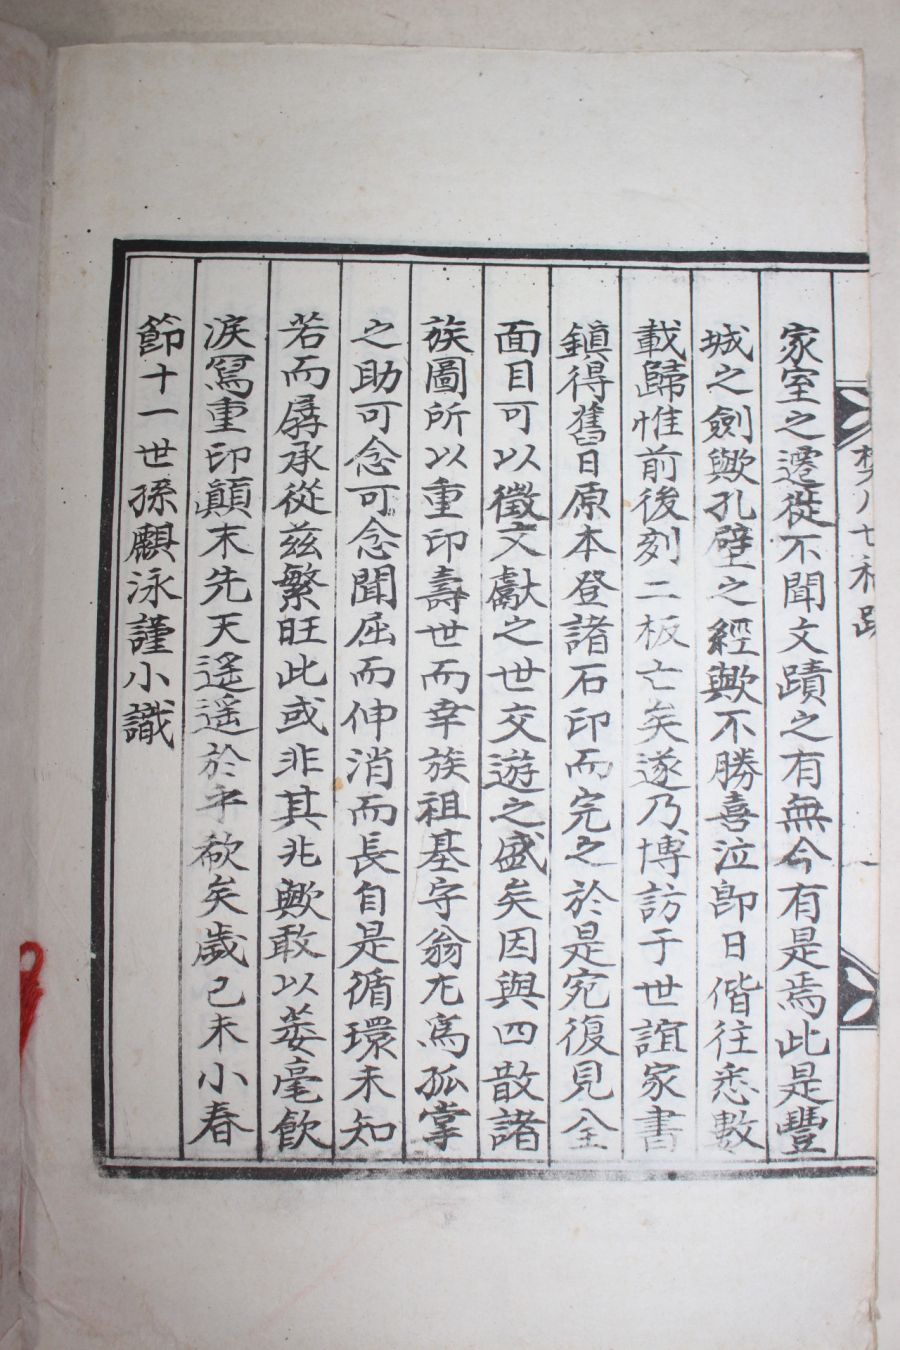 家室之遷徙不聞文蹟之有無今有是焉此是豐
城之劍歟孔壁之經歟不勝喜泣卽日偕往悉數
載歸惟前後刻二板亡矣遂乃博訪于世誼家書
鎭得舊日原本登諸石印而完之於是宛復見全
面目可以徵文獻之世交遊之盛矣因與四散諸
族圖所以重印壽世而幸族祖基字翁尤爲孤掌
之助可念可念聞屈而伸消而長自是循環未知
若而孱承從茲繁旺此或非其兆歟敢以萎毫飮
淚寫重印顚末先天遙遙於乎欷矣歲己未小春
節十一世孫麒泳謹小識